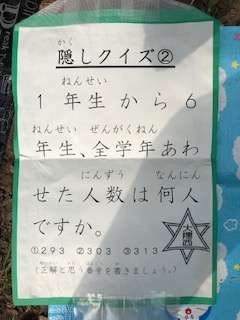 かく
隠しクイズ②
ねんせい
1年生から6
ねんせい ぜんがくねん
年生、全学年あわ
にんずう なんにん
せた人数は何人
ですか。
①293 ②303 ③313
(正解と思う番号を書きましょう。)